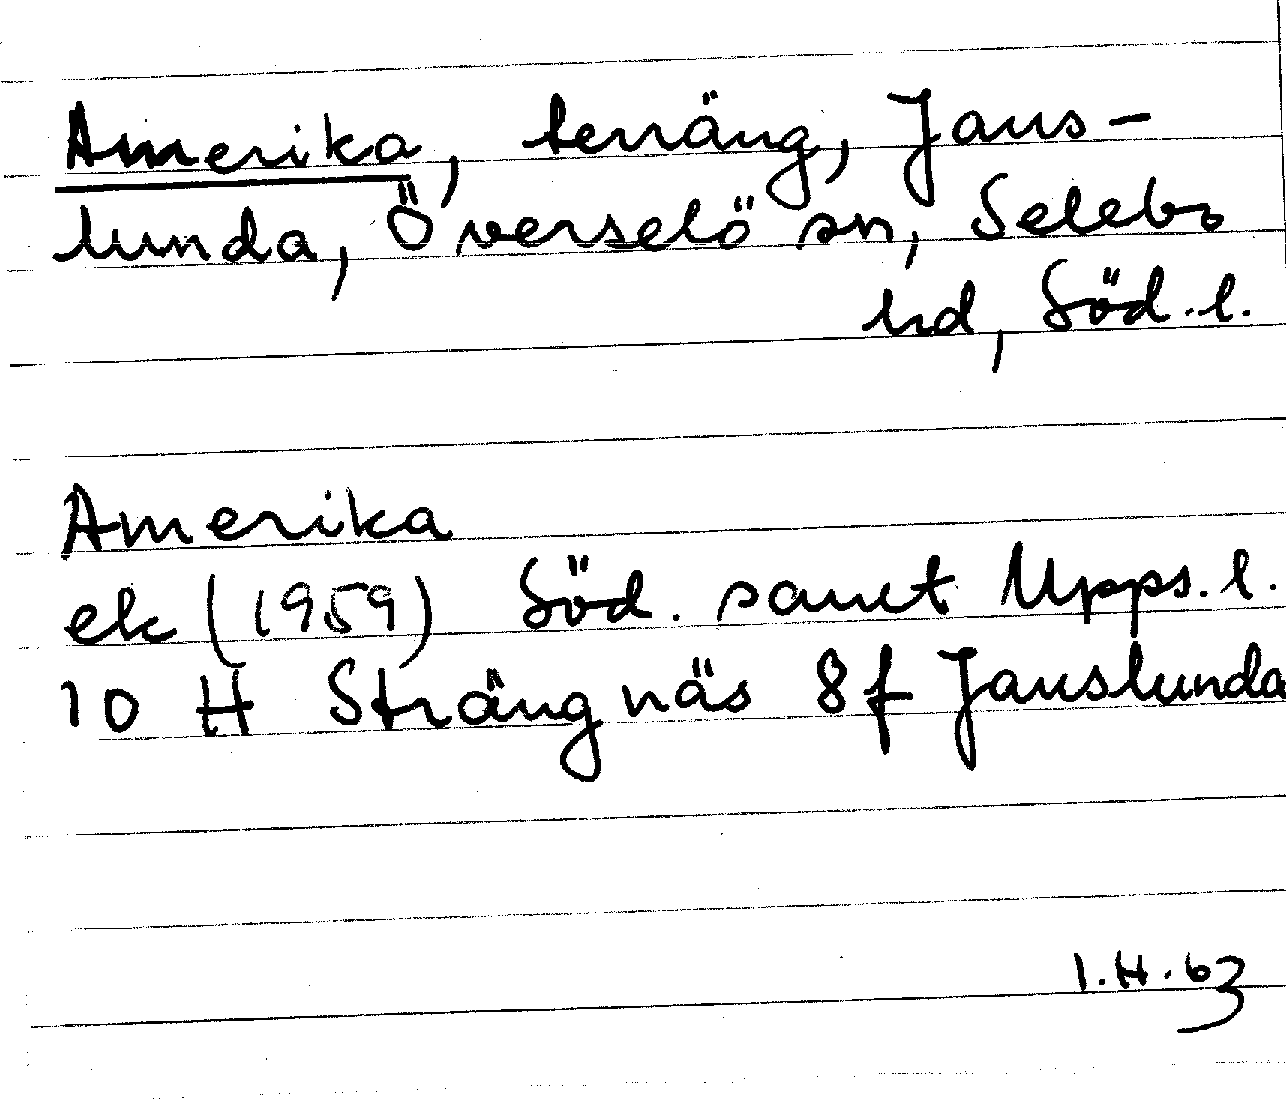 Amerika, terräng, Jans-
lunda, Överselö sn, Selebo
hd, Söd. l.
Amerika
ek (1959) Söd. samt Upps. l.
10 H Strängnäs 8f Janslunda
I.H. 63